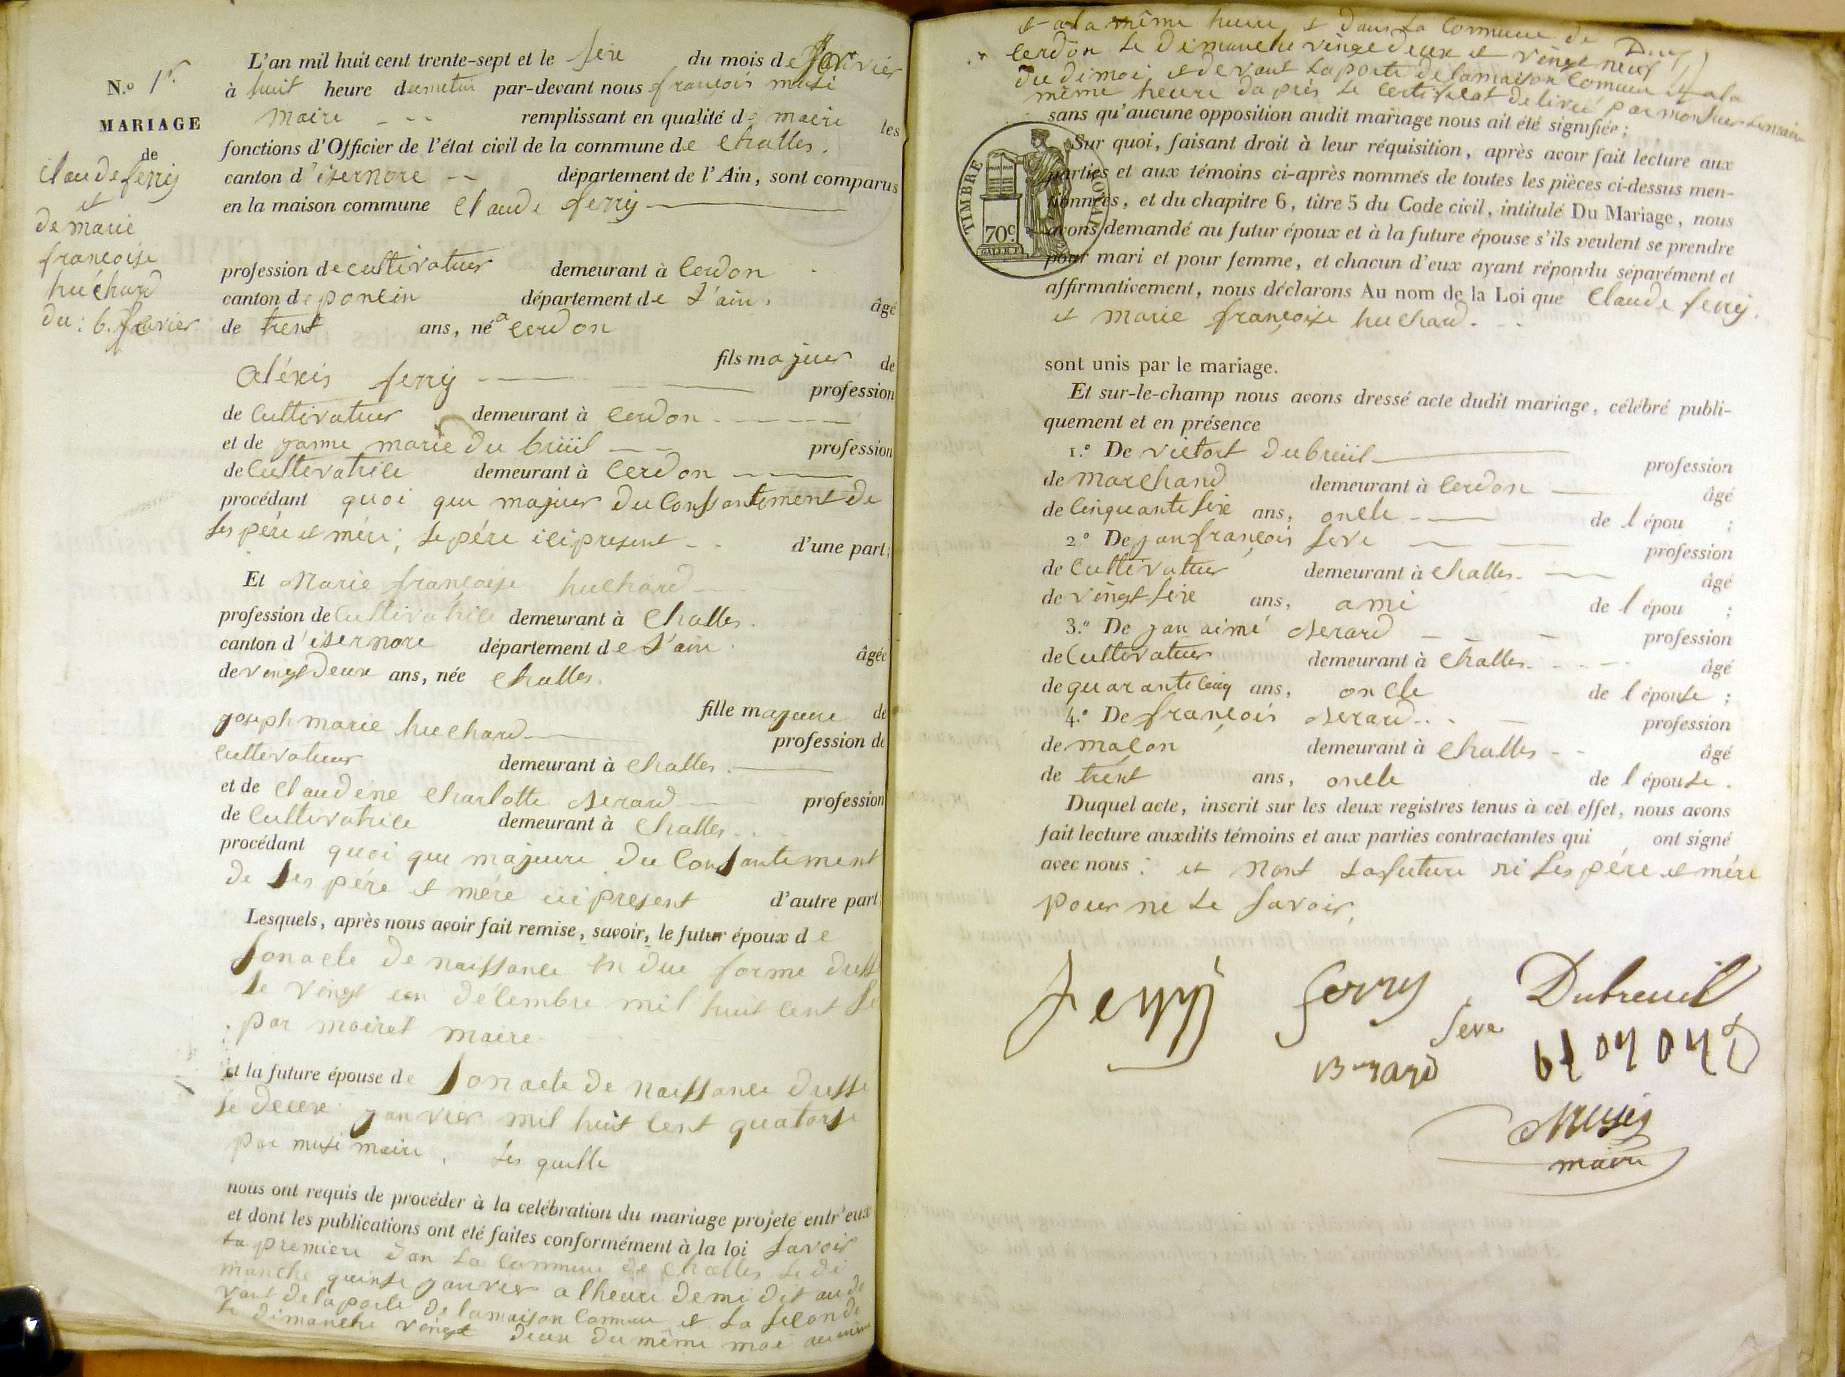 N.o 1r.
MARIAGE
de
Claude ferrÿ
et
de marie
françoise
huchard
du: 6. fevrier
L'an mil huit cent trente-sept et le sixe du mois de fevrier
à huit heure dumatin par-devant nous françois musi
maire remplissant en qualité de maire les
fonctions d'Officier de l'état civil de la commune de Challes.
canton d'isernore département de l'Ain, sont comparus
en la maison commune Claude ferrÿ
profession de cultivatuer demeurant à Cerdon
canton de poncin département de L'ain. âgé
de trent ans, né a Cerdon
fils majuer de
aléxis ferrÿ profession
de Cultivatuer demeurant à Cerdon
et de janne marie du briüil profession
de Cultivatrice demeurant à Cerdon
procédant quoi que majuer du Consantement de
ses pére et mére; Le pére ici present d'une part;
Et Marie françoise huchard
profession de Cultivatrice demeurant à Challes.
canton d'isernore département de L'ain. âgée
de vingt deux ans, née Challes.
fille majuere de
joseph marie huchard profession de
Cultivatuer demeurant à Challes.
et de Claudine Charlotte Berard profession
de Cultivatrice demeurant à Challes
procédant quoi que majuere du Consantement
de ses pére et mére ici present d'autre part.
Lesquels, après nous avoir fait remise, savoir, le futur époux de
son acte de naissance en due forme
le vingt un décembre mil huit cent
par moiret maire
et la future épouse de son acte de naissance dresse
le deux janvier mil huit cent quatorse
par musi maire. Les quelle
nous ont requis de procéder à la celébration du mariage projeté entr'eux
et dont les publications ont été faites conformément à la loi savoir
La premiere dan La Commune de Challes Le di
manche quinse janvier a lheure de mi di et au de
vant de la porte de la maison Commune et La seconde
le dimanche vingt deux du même moi
et a la même heure et dans La Commune de
Cerdon Le dimanche vingt deux et vingt neuf
du di moi et devant La porte de la maison Comune et a la
même heure dapres Le Certificat delivré par monsieur Lemaire
sans qu'aucune opposition audit mariage nous ait été signifiée;
TIMBRE ROYAL
70c.
Sur quoi, faisant droit à leur réquisition, après avoir fait lecture aux
parties et aux témoins ci-après nommés de toutes les pièces ci-dessus men-
tionnées, et du chapitre 6, titre 5 du Code civil, intitulé Du Mariage, nous
avons demandé au futur époux et à la future épouse s'ils veulent se prendre
pour mari et pour femme, et chacun d'eux ayant répondu séparément et
affirmativement, nous déclarons Au nom de la Loi que Claude ferrÿ.
et marie françoise huchard.
sont unis par le mariage.
Et sur-le-champ nous avons dressé acte dudit mariage, célébré publi-
quement et en présence
1.o De victort dubreüil profession
de marchand demeurant à Cerdon âgé
de Cinquante sixe ans, oncle de l épou ;
2.o De jan françois seve profession
de Cultivatuer demeurant à Challes. âgé
de vingt sixe ans, ami de l épou ;
3.o De jan aimé Berard profession
de Cultivatuer demeurant à Challes. âgé
de quarante cinq ans, oncle de l épouse ;
4.o De françois Berard profession
de maçon demeurant à Challes âgé
de trent ans, oncle de l épouse.
Duquel acte, inscrit sur les deux registres tenus à cet effet, nous avons
fait lecture auxdits témoins et aux parties contractantes qui ont signé
avec nous: et nont La future ni ses pére et mére
pour ne Le savoir.
ferrÿ ferry Dubreuil
seve
Berard
Musy
maire